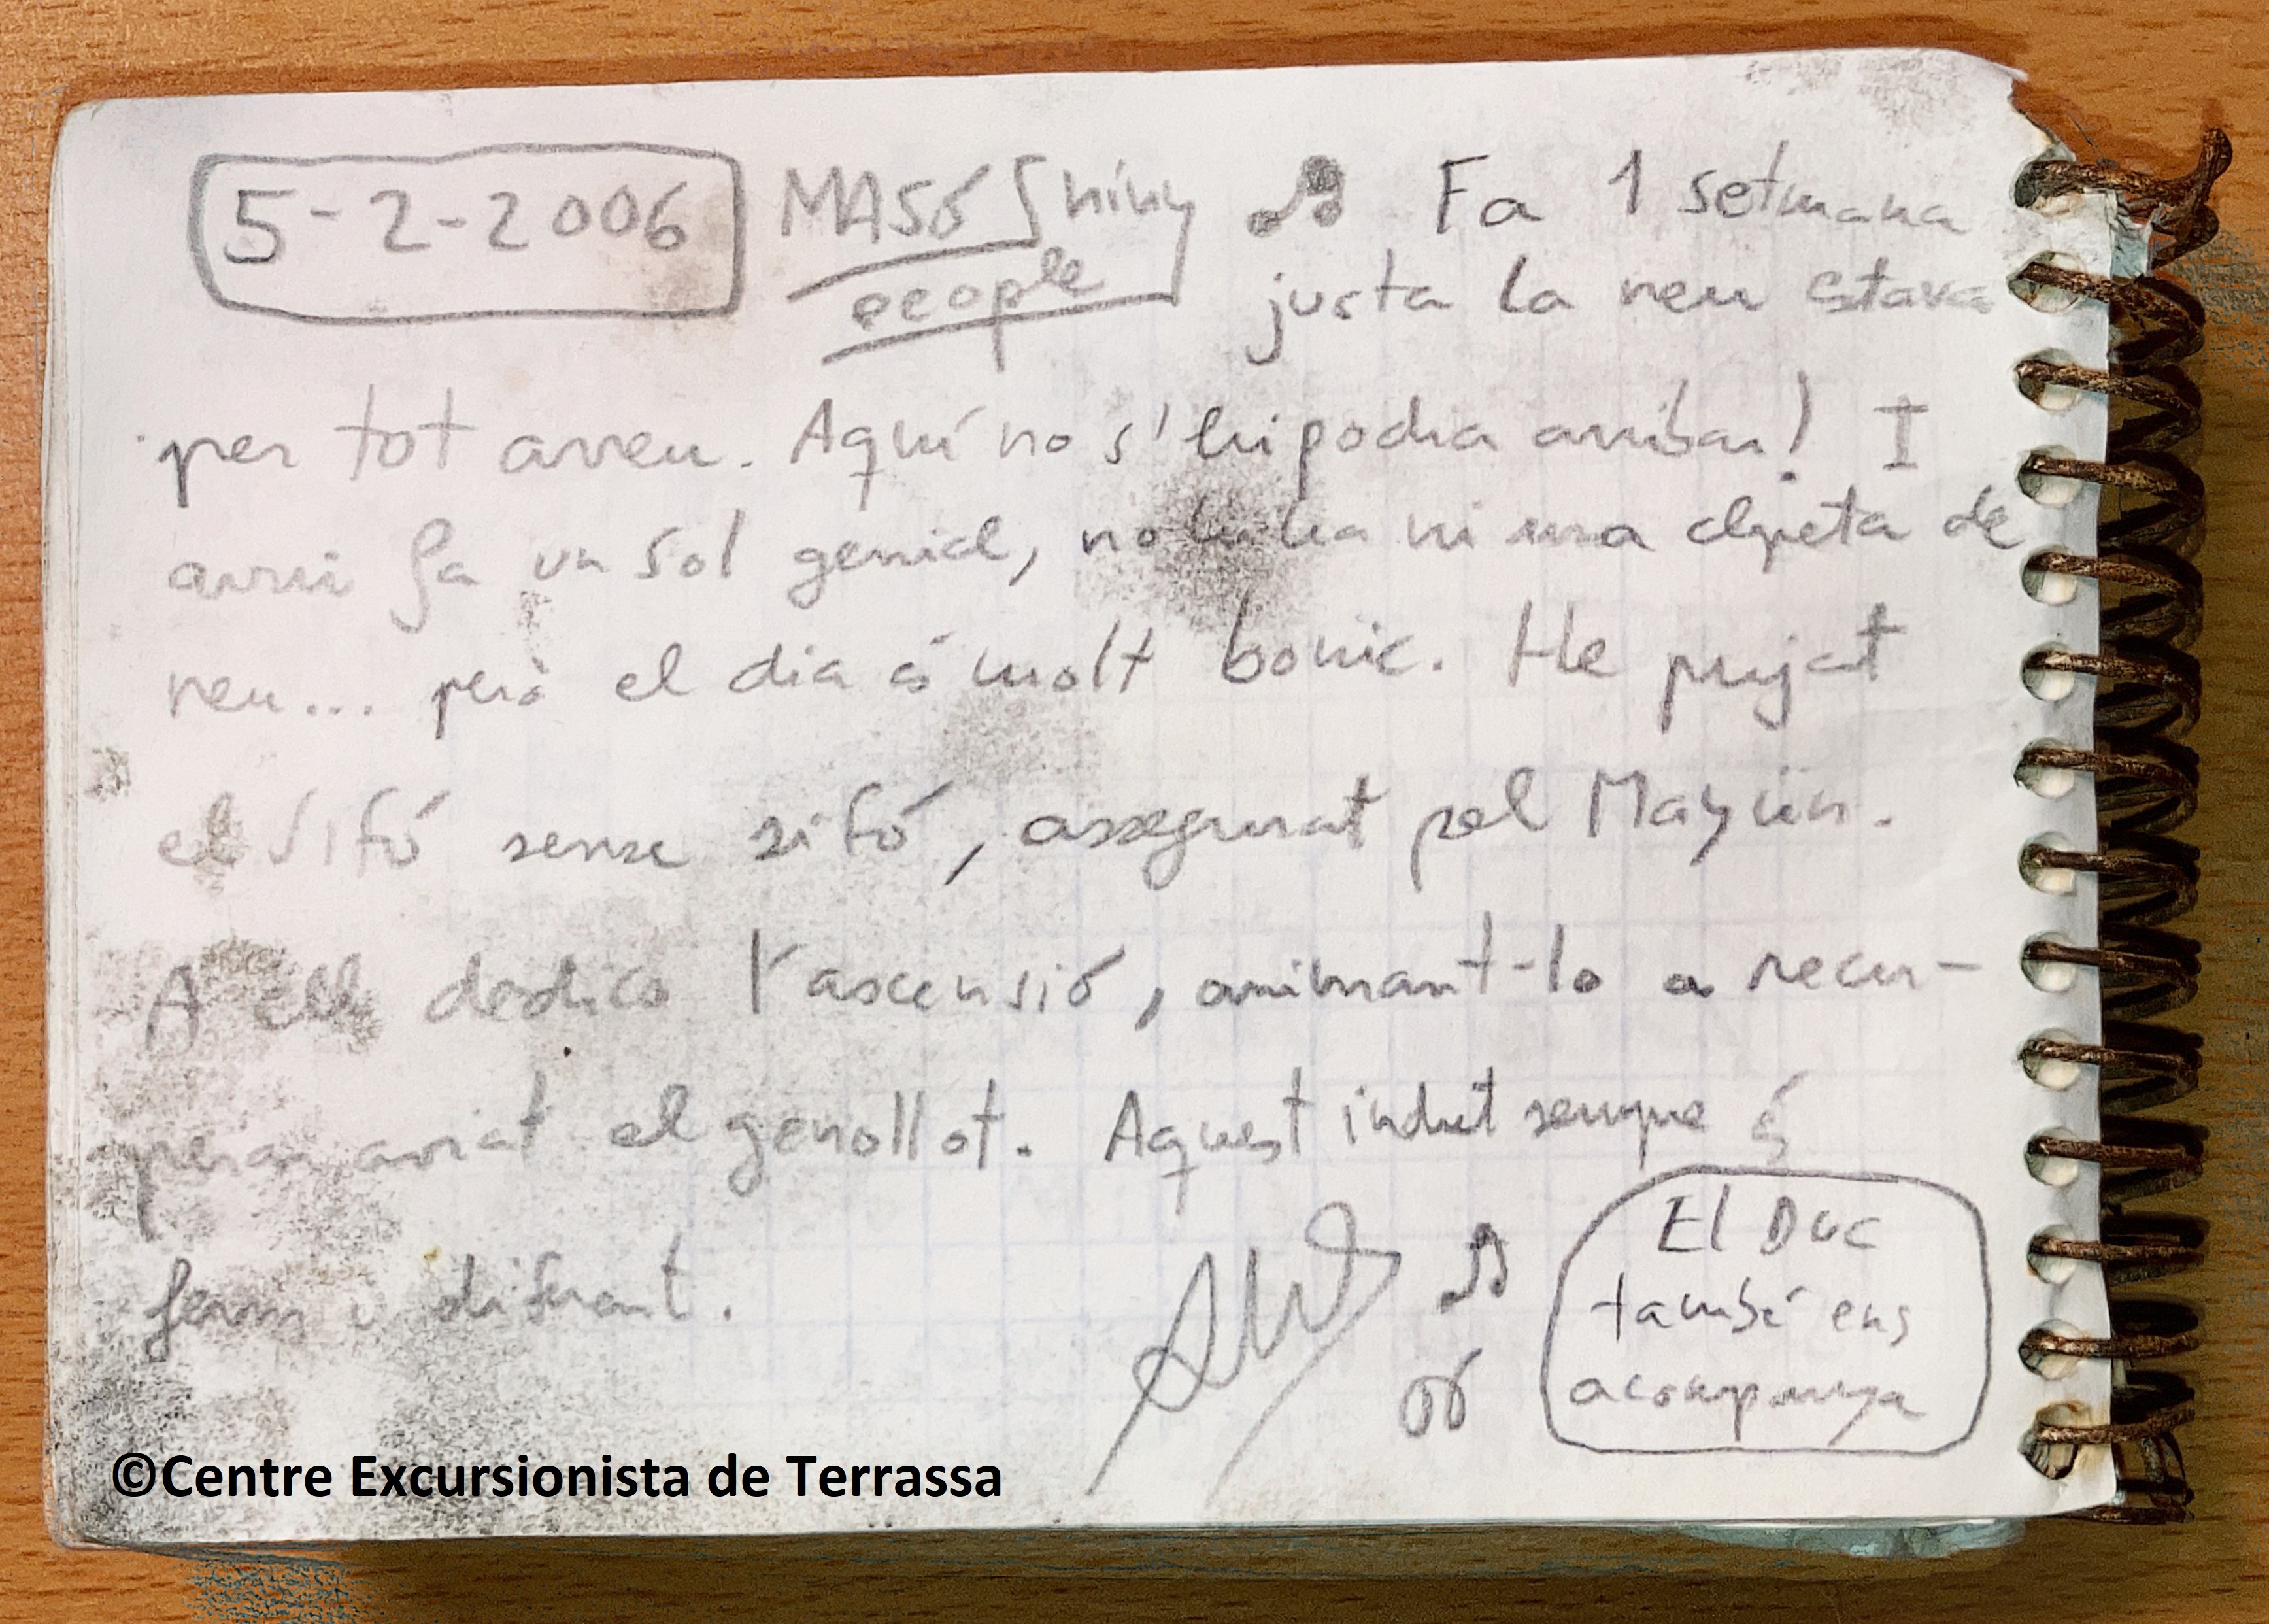 5-2-2006 MASÓ Shiny Fa 1 setmana
people justa la neu estava
per tot arreu. Aquí no s'hi podia arribar! I
avui fa un sol genial, no hi ha ni una clapeta de
neu... però el dia és molt bonic. He pujat
el Sifó sense sifó, assegurat pel
A ell dedico l'ascensió, animant-lo a recu-
perar aviat el genollot. Aquest indret sempre és
ferm i diferent.
El Duc
també ens
acompanya
©Centre Excursionista de Terrassa